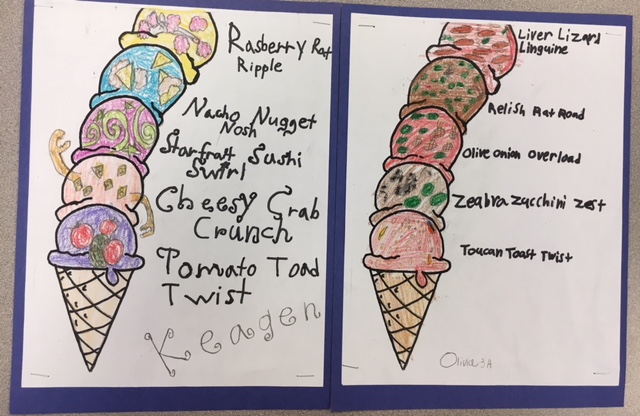 Rasberry Rat
Ripple
Nacho Nugget
Nosh
Starfruit Sushi
Swirl
Cheesy Crab
Crunch
Tomato Toad
Twist
Keagen
Liver Lizard
Linguine
Relish Rat Road
Olive onion overload
Zeabra zucchini zest
Toucan Toast Twist
Olivia 3A